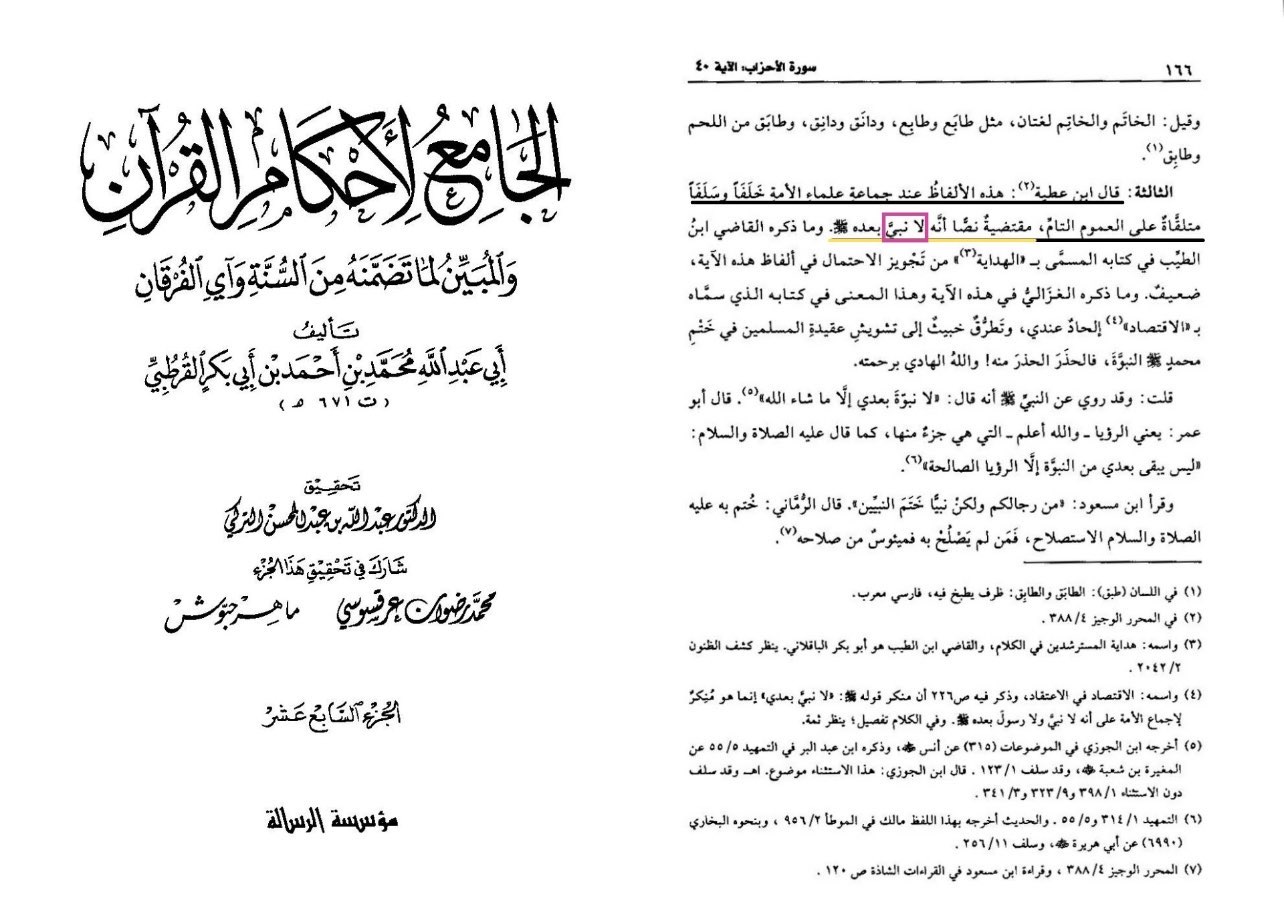 الجَامِعُ لِأَحْكَامِ القُرْآنِ
وَالمُبَيِّنُ لِمَا تَضَمَّنَهُ مِنَ السُّنَّةِ وَآيِ الفُرْقَانِ
تَأليفُ
أَبِي عَبْدِ اللَّهِ مُحَمَّدِ بْنِ أَحْمَدَ بْنِ أَبِي بَكْرٍ القُرْطُبِيِّ
(ت ٦٧١ هـ)
تَحقِيق
الدكتور عبد الله بن عبد المحسن التركي
شَارَكَ فِي تَحْقِيقِ هَذَا الجُزْءِ
محمد رضوان عرقسوسي ماهر حبوش
الجُزءُ السَّابِع عَشَر
مؤسسة الرسالة
١٦٦ سورة الأحزاب: الآية ٤٠
وقيل: الخاتَم والخاتِم لغتان، مثل طابَع وطابِع، ودانَق ودانِق، وطابَق من اللحم
وطابِق(١).
الثالثة: قال ابن عطية(٢): هذه الألفاظُ عند جماعة علماء الأمة خَلَفَاً وسَلَفَاً
متلقَّاةٌ على العموم التامِّ، مقتضيةٌ نصًّا أنَّه لا نبيَّ بعده ﷺ. وما ذكره القاضي ابنُ
الطيِّب في كتابه المسمَّى بـ «الهداية(٣)» من تَجْويز الاحتمال في ألفاظ هذه الآية،
ضعيفٌ. وما ذكره الغزاليُّ في هذه الآية وهذا المعنى في كتابه الذي سمَّاه
بـ «الاقتصاد»(٤) إلحادٌ عندي، وتَطرُّقٌ خبيثٌ إلى تشويشِ عقيدةِ المسلمين في خَتْمِ
محمدٍ ﷺ النبوَّةَ، فالحذَرَ الحذرَ منه! واللهُ الهادي برحمته.
قلت: وقد روي عن النبيِّ ﷺ أنه قال: «لا نبوّةَ بعدي إلَّا ما شاء الله»(٥). قال أبو
عمر: يعني الرؤيا ـ والله أعلم ـ التي هي جزءٌ منها، كما قال عليه الصلاة والسلام:
«ليس يبقى بعدي من النبوَّة إلَّا الرؤيا الصالحة»(٦).
وقرأ ابن مسعود: «من رجالكم ولكنْ نبيًّا خَتَمَ النبيِّين». قال الرُّمَّاني: خُتم به عليه
الصلاة والسلام الاستصلاح، فَمَن لم يَصْلُحْ به فميئوسٌ من صلاحه(٧).
(١) في اللسان (طبق): الطابَق والطابِق: ظرف يطبخ فيه، فارسي معرب.
(٢) في المحرر الوجيز ٣٨٨/٤ .
(٣) واسمه: هداية المسترشدين في الكلام، والقاضي ابن الطيب هو أبو بكر الباقلاني. ينظر كشف الظنون
٢٠٤٢/٢ .
(٤) واسمه: الاقتصاد في الاعتقاد، وذكر فيه ص٢٢٦ أن منكر قوله ﷺ: «لا نبيَّ بعدي» إنما هو مُنِكرٌ
لإجماع الأمة على أنه لا نبيَّ ولا رسولَ بعده ﷺ. وفي الكلام تفصيل؛ ينظر ثمة.
(٥) أخرجه ابن الجوزي في الموضوعات (٣١٥) عن أنس ﵁، وذكره ابن عبد البر في التمهيد ٥٥/٥ عن
المغيرة بن شعبة ﵁، وقد سلف ١٢٣/١ . قال ابن الجوزي: هذا الاستثناء موضوع. اهـ وقد سلف
دون الاستثناء ٣٩٨/١ و٣٢٣/٩ و٣٤١/٣ .
(٦) التمهيد ٣١٤/١ و٥٥/٥ . والحديث أخرجه بهذا اللفظ مالك في الموطأ ٩٥٦/٢ ، وبنحوه البخاري
(٦٩٩٠) عن أبي هريرة ﵁، وسلف ٢٥٦/١١ .
(٧) المحرر الوجيز ٣٨٨/٤ ، وقراءة ابن مسعود في القراءات الشاذة ص ١٢٠ .